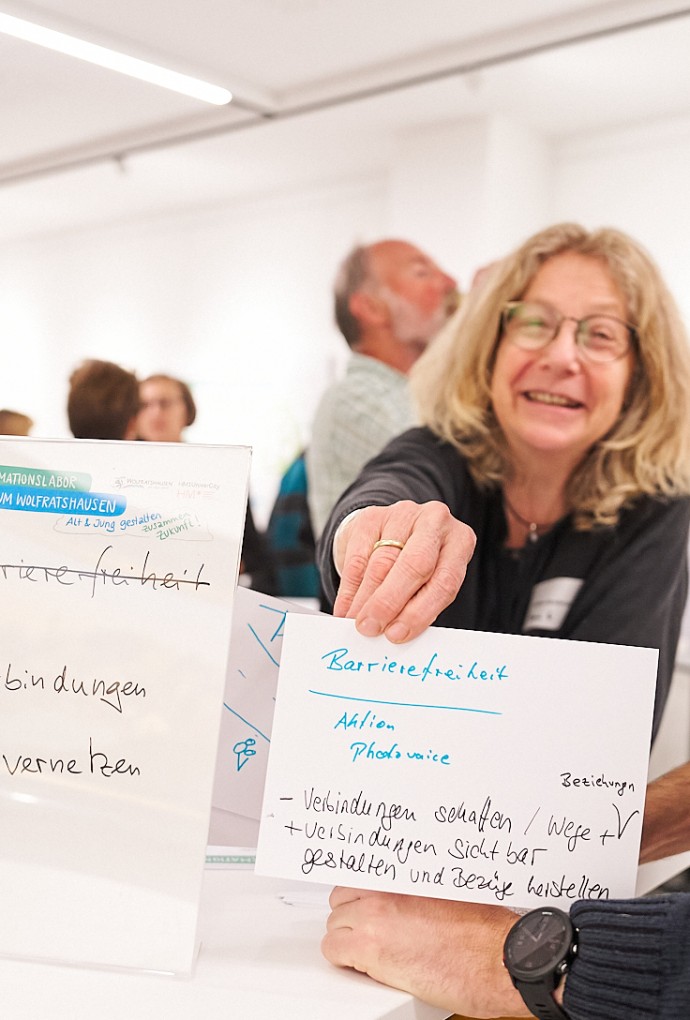 MATIONSLABOR
UM WOLFRATSHAUSEN
Alt & Jung gestalten
zusammen
Zukunft!
rierefreiheit
bindungen
vernetzen
Barrierefreiheit
Aktion
Photovoice
Beziehungen
- Verbindungen schaffen / Wege +
+ Verbindungen sichtbar
gestalten und Bezüge herstellen